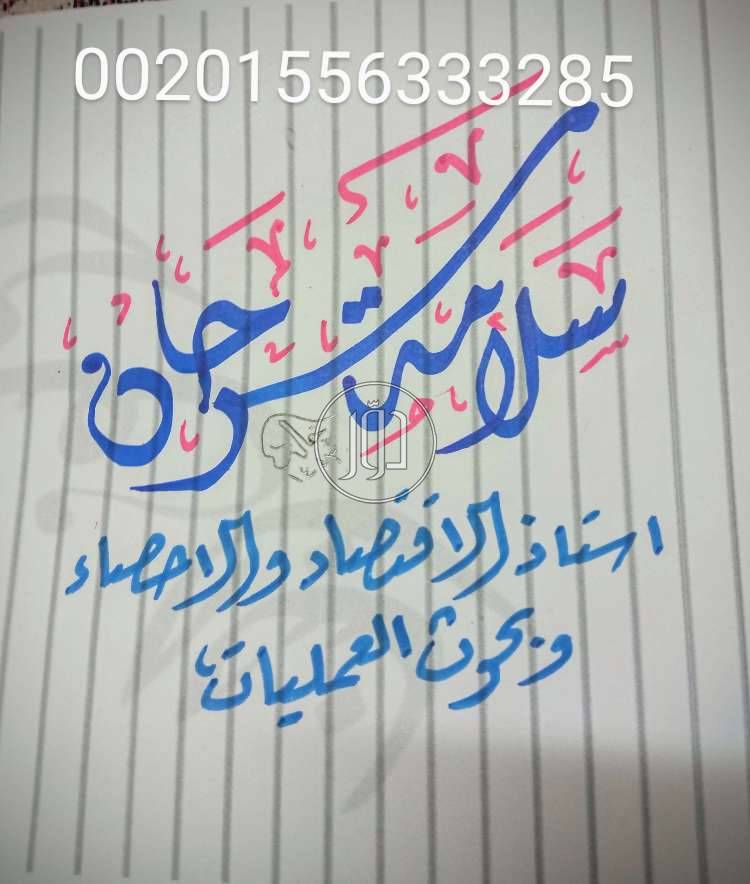 00201556333285
سلامة سرحان
دوز
استاذ الاقتصاد والاحصاء
وبحوث العمليات